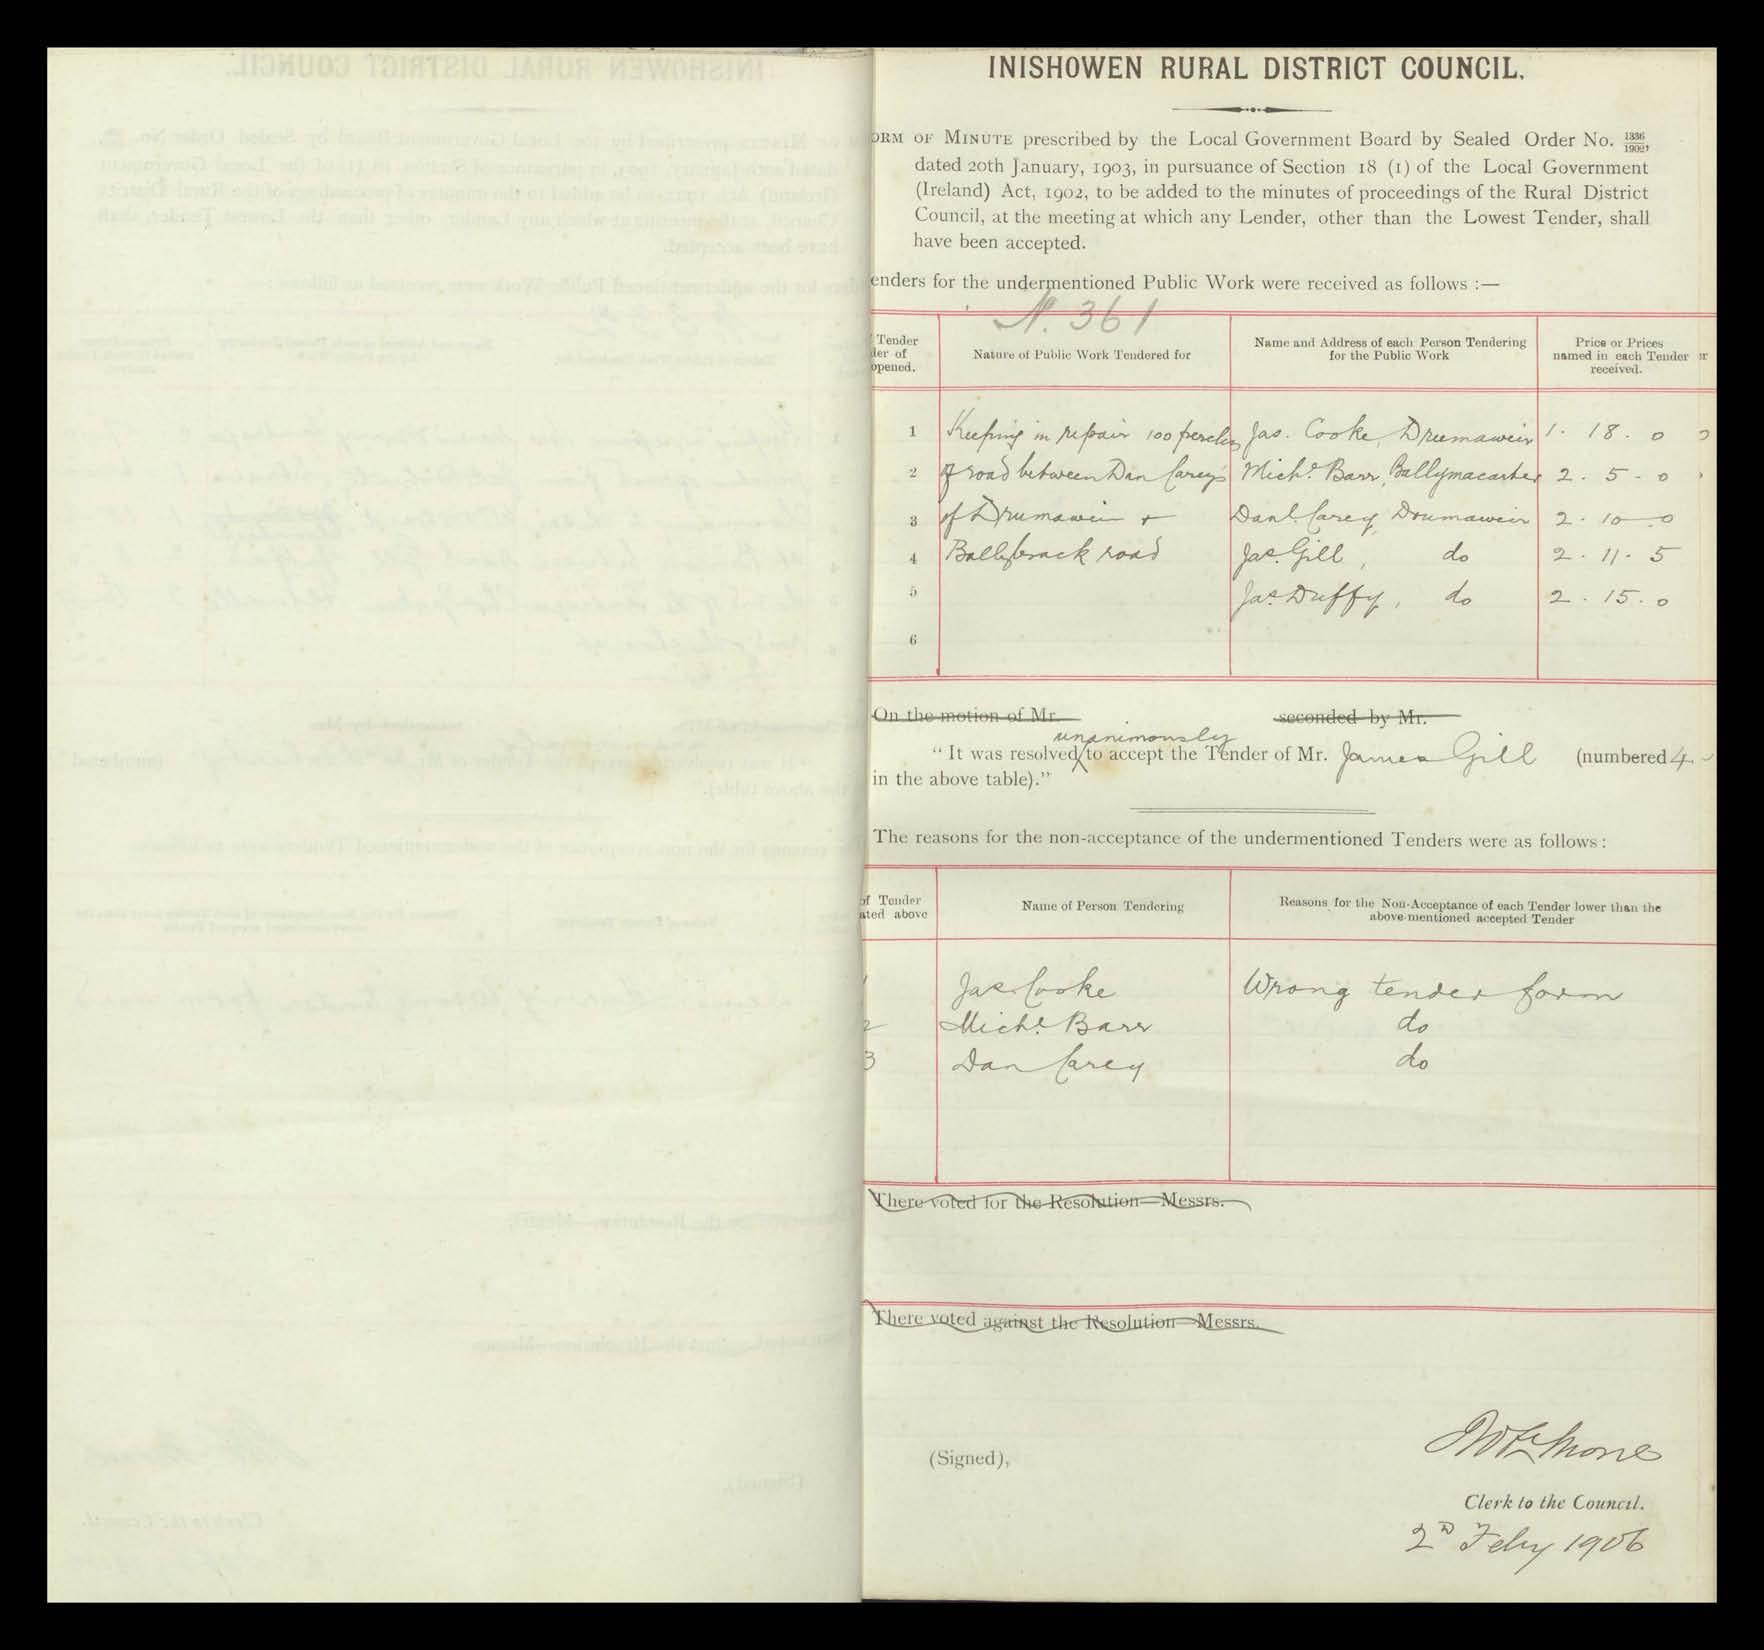 INISHOWEN RURAL DISTRICT COUNCIL.
ORM OF MINUTE prescribed by the Local Government Board by Sealed Order No. 1336/1902,
dated 20th January, 1903, in pursuance of Section 18 (1) of the Local Government
(Ireland) Act, 1902, to be added to the minutes of proceedings of the Rural District
Council, at the meeting at which any Lender, other than the Lowest Tender, shall
have been accepted.
enders for the undermentioned Public Work were received as follows :—
N. 361
Tender
der of
opened.
Nature of Public Work Tendered for
Name and Address of each Person Tendering
for the Public Work
Price or Prices
named in each Tender
received.
1 Keeping in repair 100 perches Jas. Cooke, Drumaweir 1. 18. 0
2 of road between Dan Carey's Michl. Barr, Ballymacarter 2. 5. 0
3 of Drumaweir + Danl. Carey, Drumaweir 2. 10. 0
4 Ballybrack road Jas. Gill, do 2. 11. 5
5 Jas. Duffy, do 2. 15. 0
6
On the motion of Mr. seconded by Mr.
unanimously
"It was resolved to accept the Tender of Mr. James Gill (numbered 4
in the above table)."
The reasons for the non-acceptance of the undermentioned Tenders were as follows :
of Tender
ated above
Name of Person Tendering
Reasons for the Non-Acceptance of each Tender lower than the
above-mentioned accepted Tender
1 Jas. Cooke Wrong tender form
2 Michl. Barr do
3 Dan Carey do
There voted for the Resolution—Messrs.
There voted against the Resolution—Messrs.
(Signed),
Clerk to the Council.
2nd Feby 1906